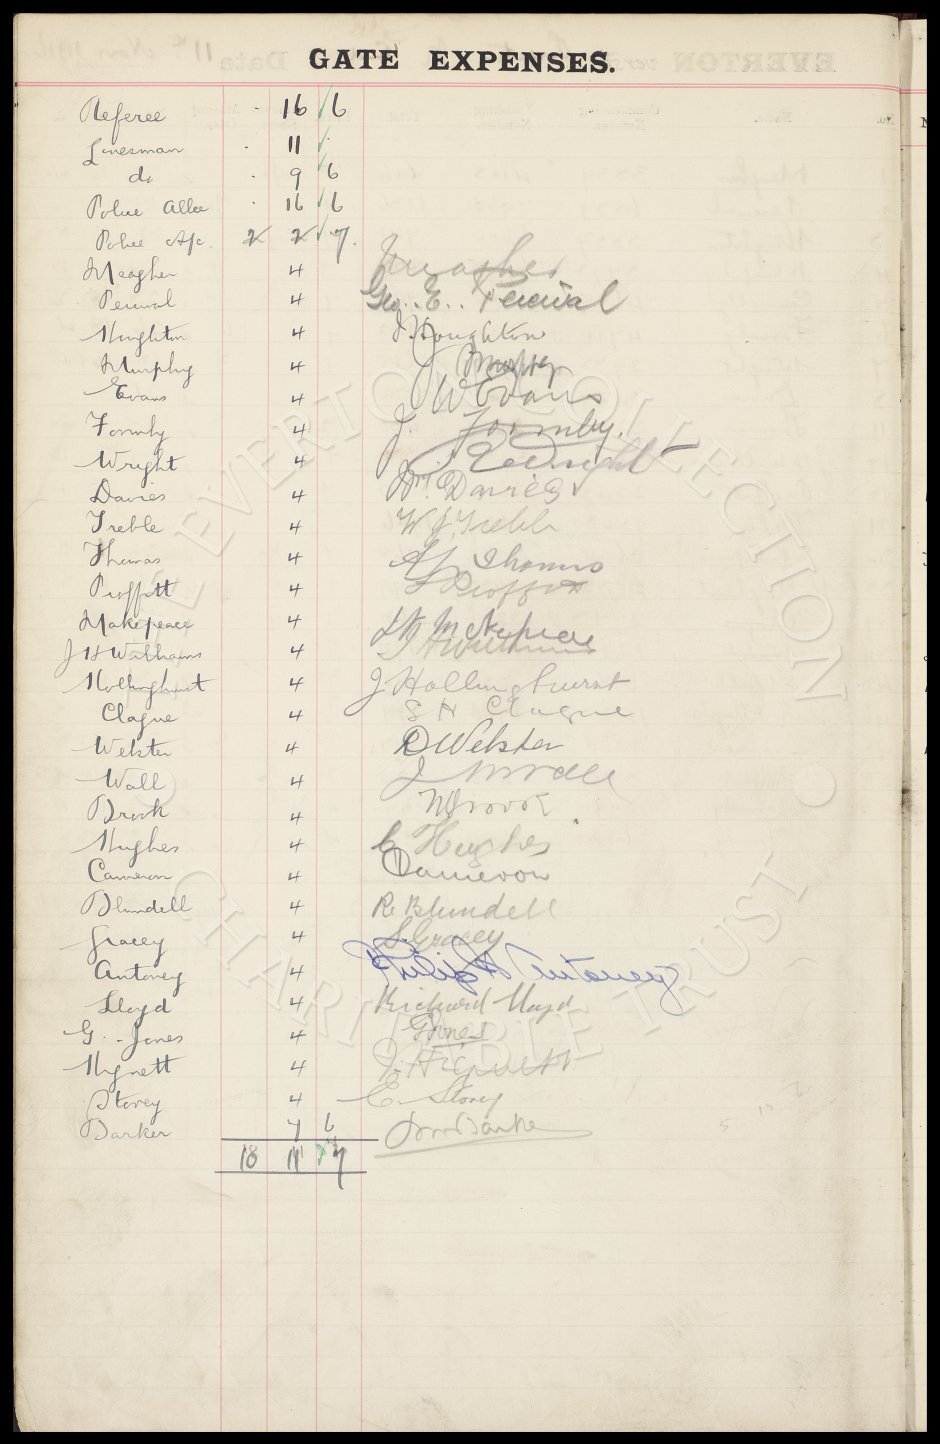 GATE EXPENSES.
Referee - 16 6
Linesman - 11 -
do - 9 6
Police Allce - 16 6
Police A/c. 2 2 7.
Meagher 4 Meagher
Percival 4 Geo. E. Percival
Houghton 4 J. Houghton
Murphy 4 Murphy
Evans 4 W Evans
Formby 4 J. Formby.
Wright 4 Wright
Davies 4 Davies
Treble 4 W J Treble
Thomas 4 Thomas
Proffitt 4 Proffitt
Makepeace 4 Makepeace
J H Williams 4 J H Williams
Hollinghurst 4 J Hollinghurst
Clague 4 S H Clague
Webster 4 Webster
Wall 4 J Wall
Brook 4 Brook
Hughes 4 Hughes
Cameron 4 Cameron
Blundell 4 R Blundell
Gracey 4 S. Gracey
Antoney 4 Philip H Antoney
Lloyd 4 Richard Lloyd
G. Jones 4 G Jones
Hignett 4 J. Hignett
Storey 4 E. Storey
Barker 7 6 Barker
18 11 7
THE EVERTON COLLECTION CHARITABLE TRUST